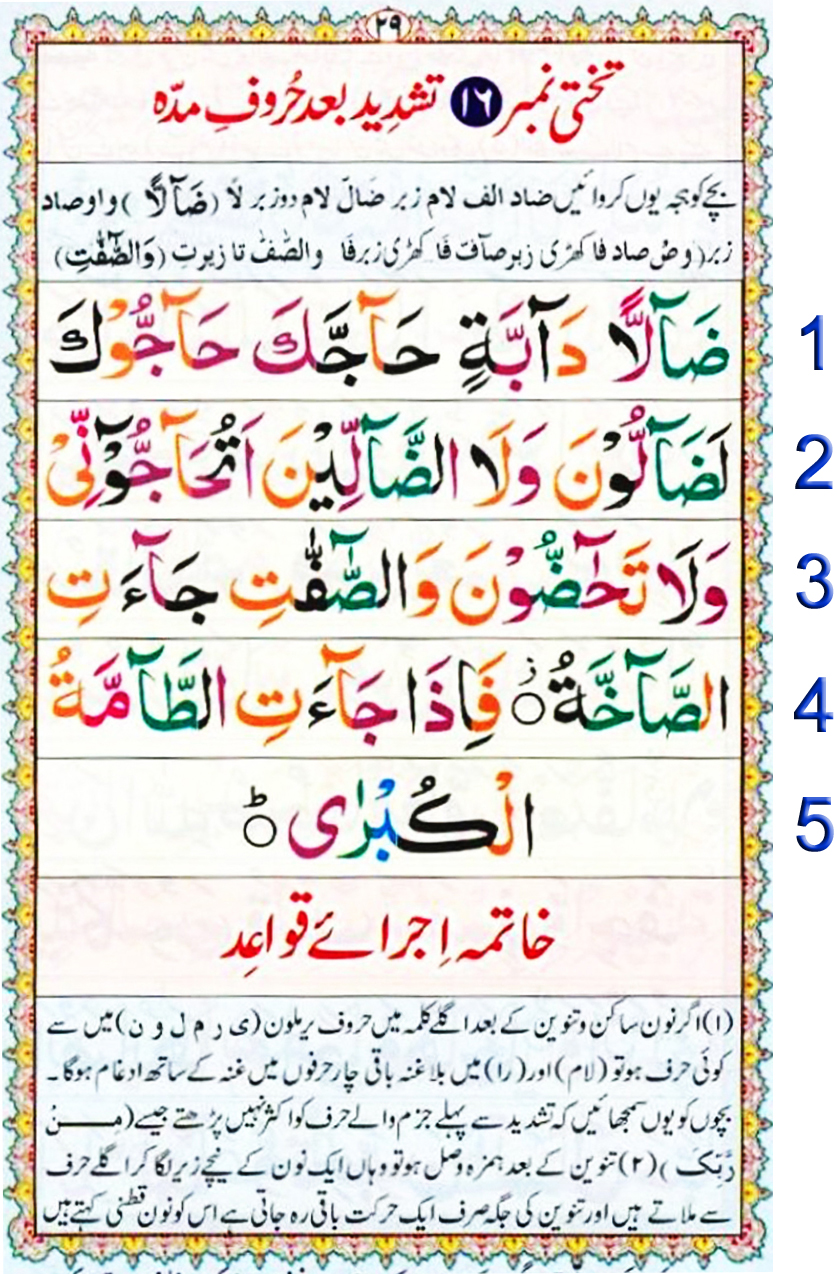 ٢٩
تختی نمبر ١٦ تشدِید بعد حُروفِ مدّہ
بچے کو ہجہ یوں کروائیں ضاد الف لام زبر ضَالّ لام دوزبر لاً (ضَآلًّا) واو صاد
زبر (وصْ صاد فا کھڑی زبر صآفّ فَا کھڑی زبر فٰا والصّٰفٰ تا زیر تِ (وَالصّٰٓفّٰتِ)
ضَآلًّا دَآبَّةٍ حَآجَّكَ حَآجُّوْكَ 1
لَضَآلُّوْنَ وَلَا الضَّآلِّيْنَ اَتُحَآجُّوْٓنِّىْ 2
وَلَا تَحٰٓضُّوْنَ وَالصّٰٓفّٰتِ جَآءَتِ 3
الصَّآخَّةُ ۟ۙ فَاِذَا جَآءَتِ الطَّآمَّةُ 4
الْكُبْرٰى 5
خاتمہ اِجرائے قواعِد
(١) اگر نون ساکن و تنوین کے بعد اگلے کلمہ میں حروف یرملون (ی ر م ل و ن) میں سے
کوئی حرف ہو تو (لام) اور (را) میں بلا غنہ باقی چار حرفوں میں غنہ کے ساتھ ادغام ہوگا۔
بچوں کو یوں سمجھائیں کہ تشدید سے پہلے جزم والے حرف کو اکثر نہیں پڑھتے جیسے (مِنْ
رَّبِّكَ) (٢) تنوین کے بعد ہمزہ وصل ہو تو وہاں ایک نون کے نیچے زیر لگا کر اگلے حرف
سے ملاتے ہیں اور تنوین کی جگہ صرف ایک حرکت باقی رہ جاتی ہے اس کو نون قطنی کہتے ہیں